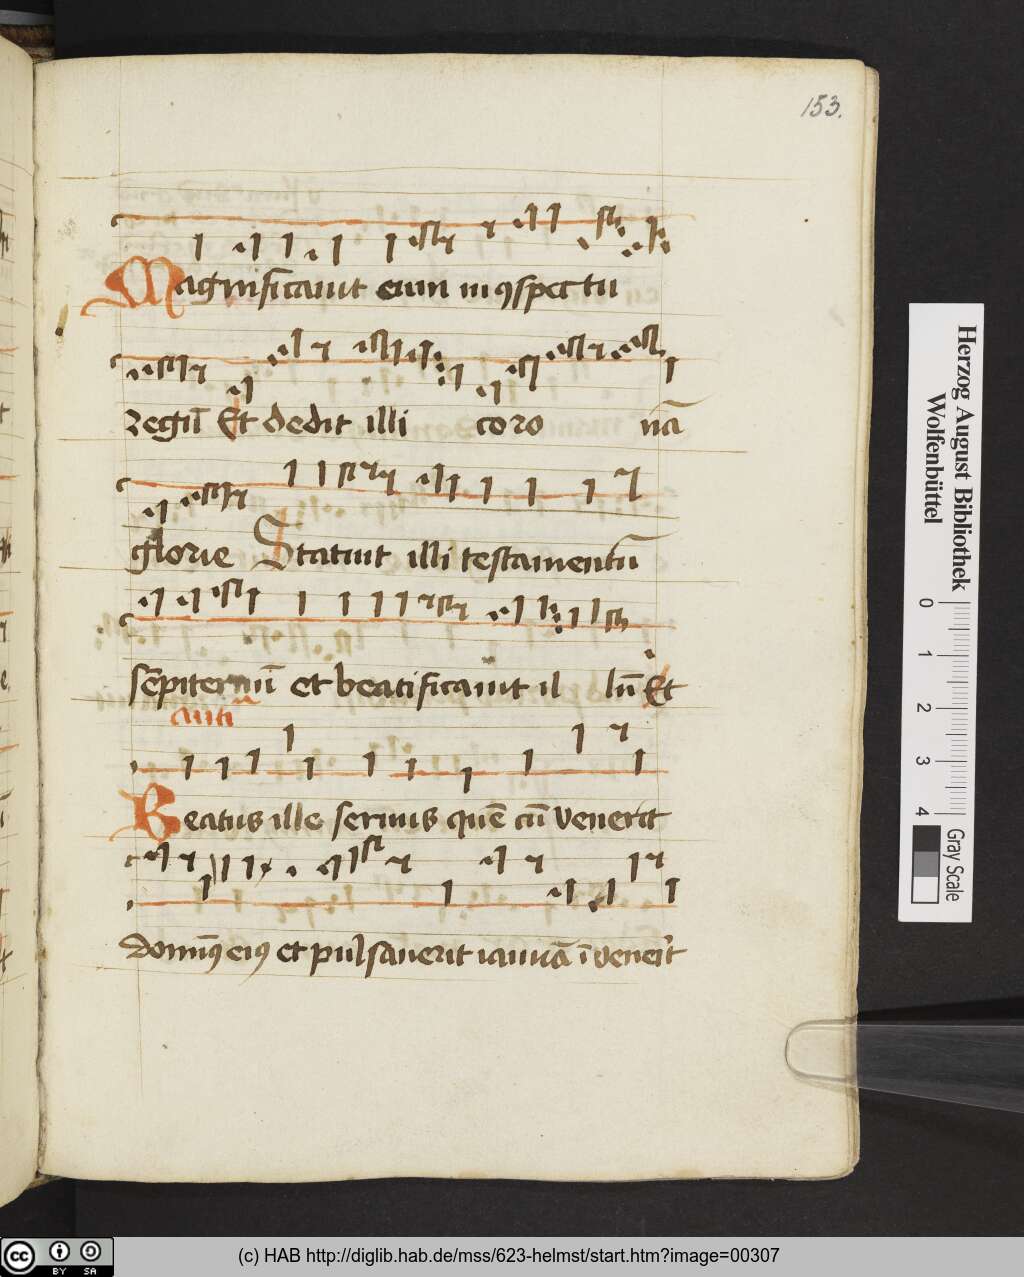 153.
Magnificauit eum in ꝯspectu
regū Et dedit illi coro nā
glorie Statuit illi testamentū
sēpiternū et beatificauit il lū Et
Beatus ille seruus quē cū venerit
domin⁹ ei⁹ et pulsauerit ianuā
Herzog August Bibliothek
Wolfenbüttel
0 1 2 3 4
Gray Scale
cc BY SA
(c) HAB http://diglib.hab.de/mss/623-helmst/start.htm?image=00307